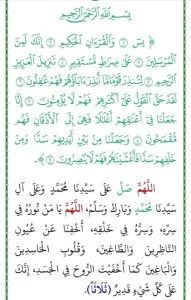 بِسْمِ اللهِ الرَّحْمٰنِ الرَّحِيْمِ
﴿ يسٓ ۝ وَالْقُرْءَانِ الْحَكِيمِ ۝ إِنَّكَ لَمِنَ
الْمُرْسَلِينَ ۝ عَلَىٰ صِرَاطٍ مُّسْتَقِيمٍ ۝ تَنزِيلَ الْعَزِيزِ
الرَّحِيمِ ۝ لِتُنذِرَ قَوْمًا مَّا أُنذِرَ ءَابَاؤُهُمْ فَهُمْ غَافِلُونَ ۝
لَقَدْ حَقَّ الْقَوْلُ عَلَىٰ أَكْثَرِهِمْ فَهُمْ لَا يُؤْمِنُونَ ۝ إِنَّا
جَعَلْنَا فِي أَعْنَاقِهِمْ أَغْلَالًا فَهِيَ إِلَى الْأَذْقَانِ فَهُم
مُّقْمَحُونَ ۝ وَجَعَلْنَا مِن بَيْنِ أَيْدِيهِمْ سَدًّا وَمِنْ
خَلْفِهِمْ سَدًّا فَأَغْشَيْنَاهُمْ فَهُمْ لَا يُبْصِرُونَ ۝ ﴾
اَللَّهُمَّ صَلِّ عَلَى سَيِّدِنَا مُحَمَّدٍ وَعَلَى آلِ
سَيِّدِنَا مُحَمَّدٍ وَبَارِكْ وَسَلِّمْ، اَللَّهُمَّ يَا مَنْ نُوْرُهُ فِي
سِرِّهِ، وَسِرُّهُ فِي خَلْقِهِ، أَخْفِنَا عَنْ عُيُوْنِ
النَّاظِرِيْنَ وَالطَّاغِيْنَ، وَقُلُوْبِ الْحَاسِدِيْنَ
وَالْبَاغِيْنَ كَمَا أَخْفَيْتَ الرُّوْحَ فِي الْجَسَدِ، إِنَّكَ
عَلَى كُلِّ شَيْءٍ قَدِيْرٌ (ثَلَاثًا).